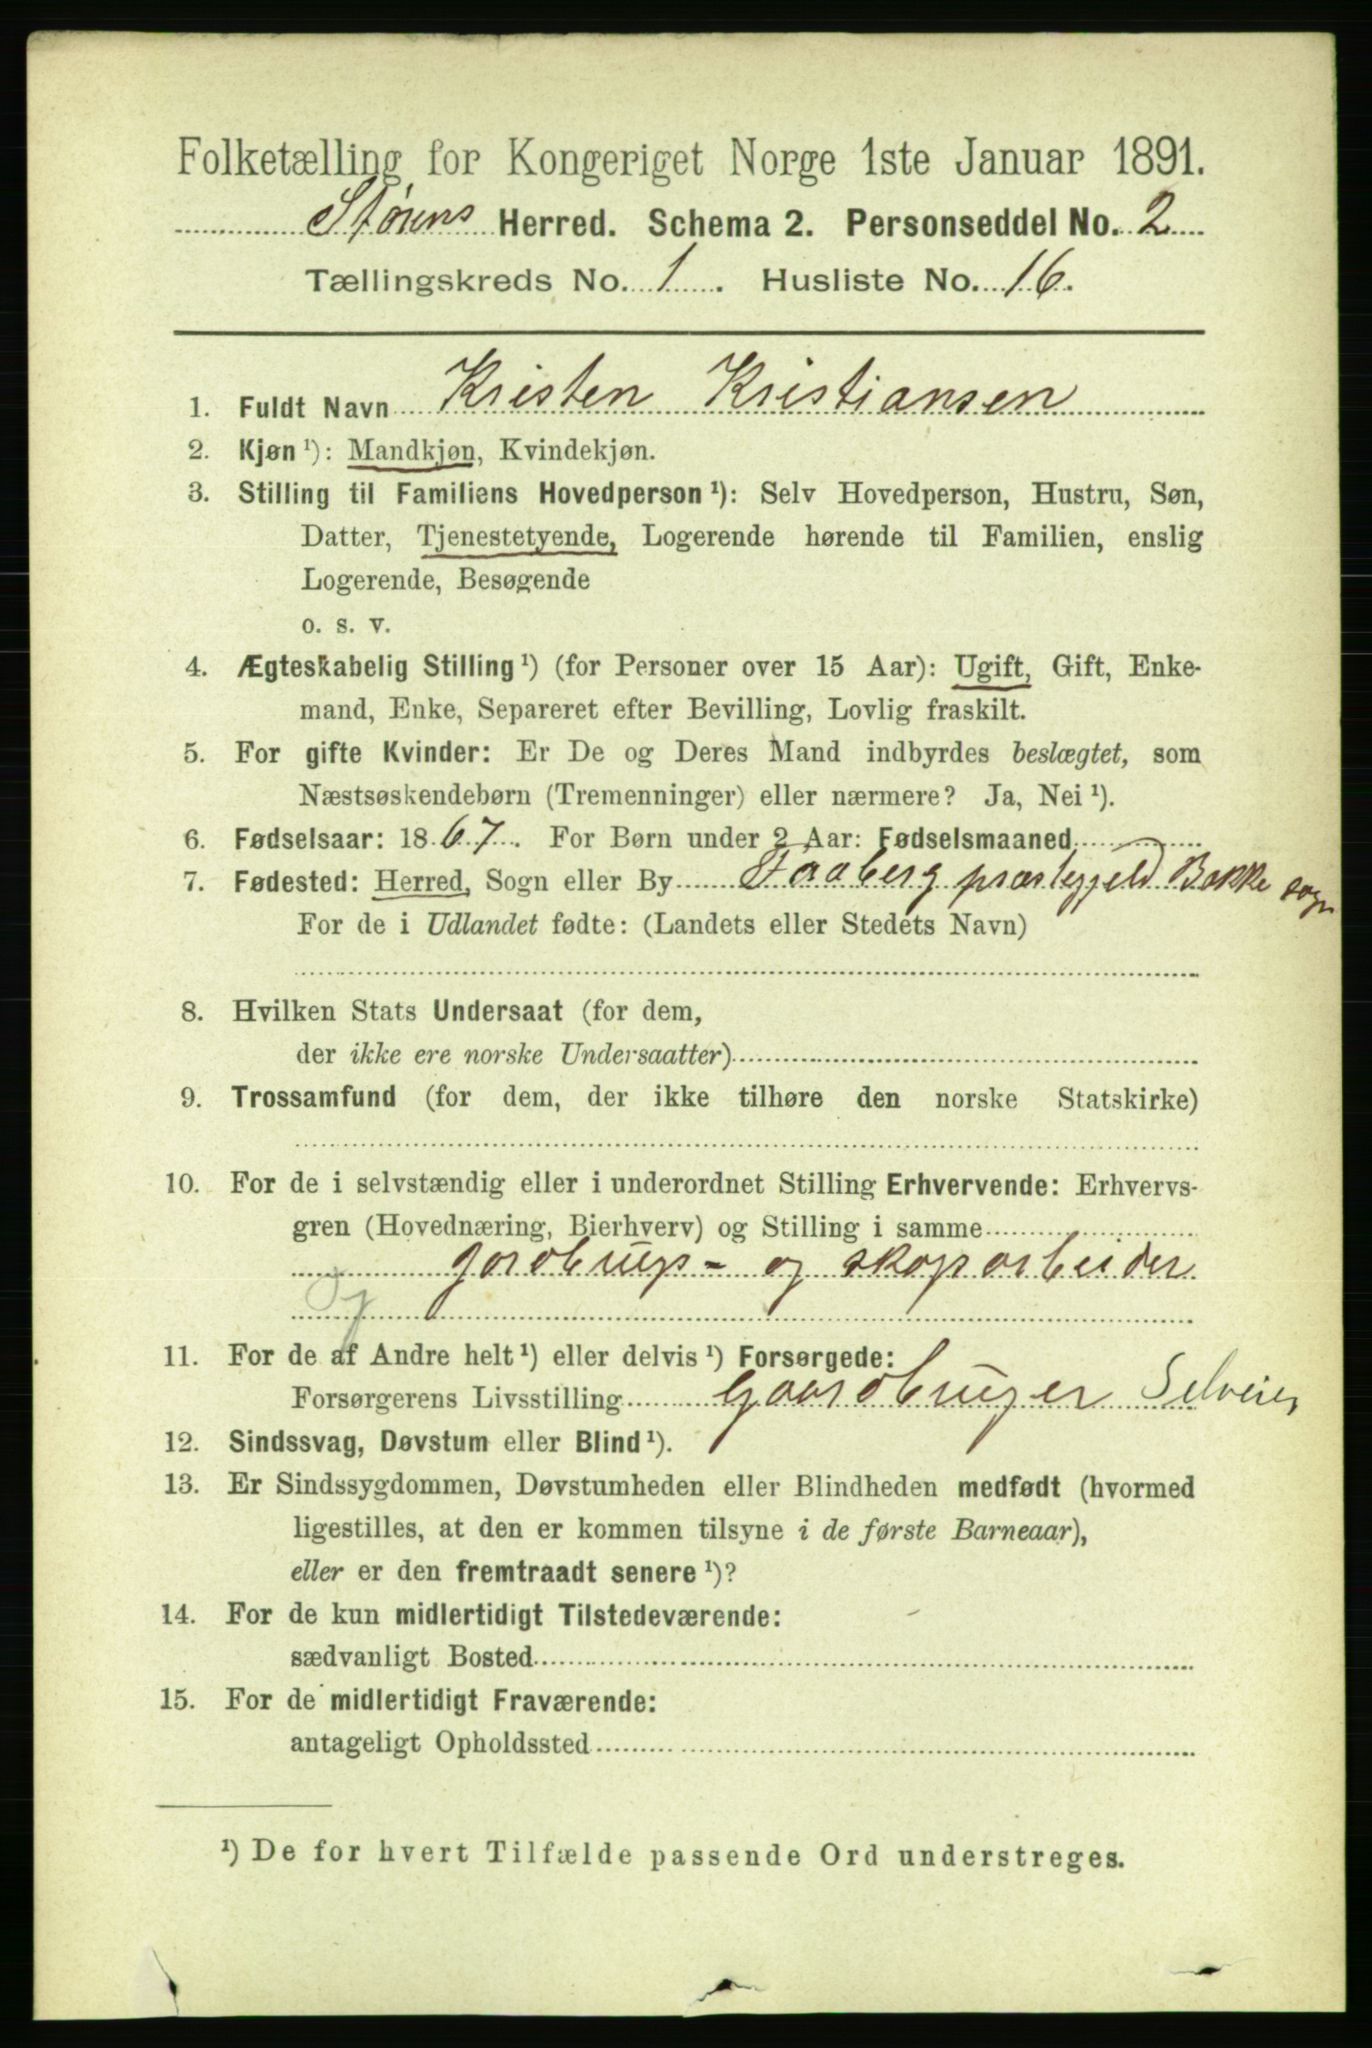 Folketælling for Kongeriget Norge 1ste Januar 1891.
Størens Herred. Schema 2. Personseddel No. 2
Tællingskreds No. 1. Husliste No. 16.
1. Fuldt Navn Kristen Kristiansen
2. Kjøn ¹): Mandkjøn, Kvindekjøn.
3. Stilling til Familiens Hovedperson ¹): Selv Hovedperson, Hustru, Søn,
Datter, Tjenestetyende, Logerende hørende til Familien, enslig
Logerende, Besøgende
o. s. v.
4. Ægteskabelig Stilling ¹) (for Personer over 15 Aar): Ugift, Gift, Enke-
mand, Enke, Separeret efter Bevilling, Lovlig fraskilt.
5. For gifte Kvinder: Er De og Deres Mand indbyrdes beslægtet, som
Næstsøskendebørn (Tremenninger) eller nærmere? Ja, Nei ¹).
6. Fødselsaar: 1867. For Børn under 2 Aar: Fødselsmaaned
7. Fødested: Herred, Sogn eller By præstegjeld Bakke sogn
For de i Udlandet fødte: (Landets eller Stedets Navn)
8. Hvilken Stats Undersaat (for dem,
der ikke ere norske Undersaatter)
9. Trossamfund (for dem, der ikke tilhøre den norske Statskirke)
10. For de i selvstændig eller i underordnet Stilling Erhvervende: Erhvervs-
gren (Hovednæring, Bierhverv) og Stilling i samme
gordbrugs- og skogarbeider
11. For de af Andre helt ¹) eller delvis ¹) Forsørgede:
Forsørgerens Livsstilling Gaardbruger Selveier
12. Sindssvag, Døvstum eller Blind ¹).
13. Er Sindssygdommen, Døvstumheden eller Blindheden medfødt (hvormed
ligestilles, at den er kommen tilsyne i de første Barneaar),
eller er den fremtraadt senere ¹)?
14. For de kun midlertidigt Tilstedeværende:
sædvanligt Bosted
15. For de midlertidigt Fraværende:
antageligt Opholdssted
¹) De for hvert Tilfælde passende Ord understreges.